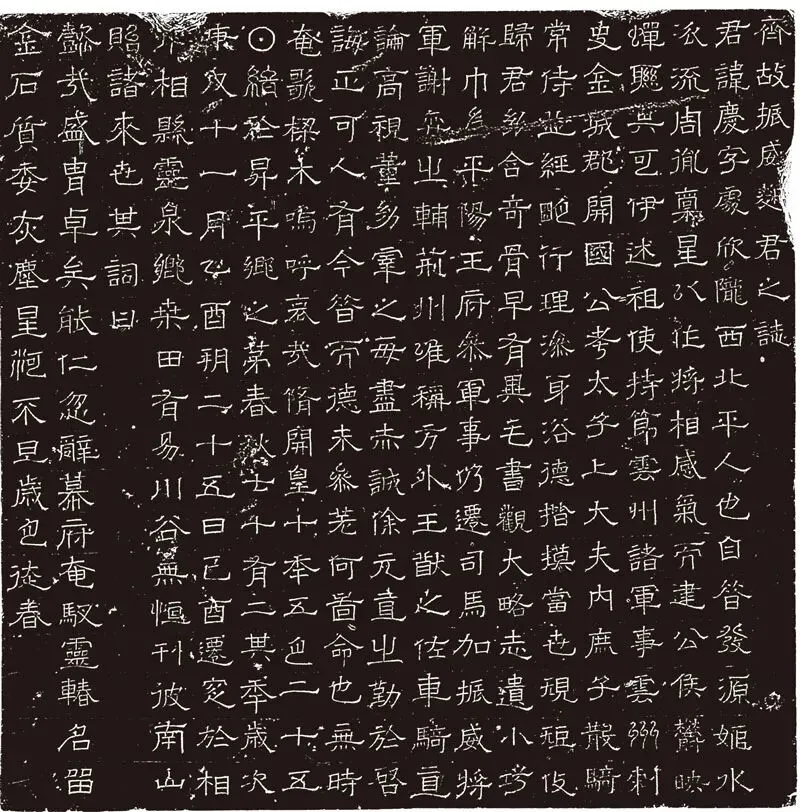 齊故振威麴君之誌
君諱慶字處欣隴西北平人也自昔發源姬水
承流周胤稟星以挺將相感氣而建公侯鬱映
蟬聯其可伊述祖使持節雲州諸軍事雲州刺
史金城郡開國公考太子上大夫內庶子散騎
常侍並經行理身浴德揩摸當世規矩後
歸君幼含奇骨早有異毛書觀大略志遺小巧
解巾爲平陽王府參軍事仍遷司馬加振威將
軍謝弈之輔荊州唯稱方外王猷之佐車騎直
論高視董幼宰之每盡赤誠徐元直之勤於啓
誨正可人有今昔而德未參差何啚命也無時
奄歌樑木嗚呼哀哉脩開皇十年五月二十五
日終於昇平鄉之第春秋七十有二其年歲次
庚戌十一月乙酉朔二十五日己酉遷窆於相
州相縣靈泉鄉桒田有易川谷無恒刊彼南山
貽諸來世其詞曰
懿哉盛冑卓矣能仁忽辭幕府奄馭靈輴名留
金石質委灰塵星迴不旦歲也徒春